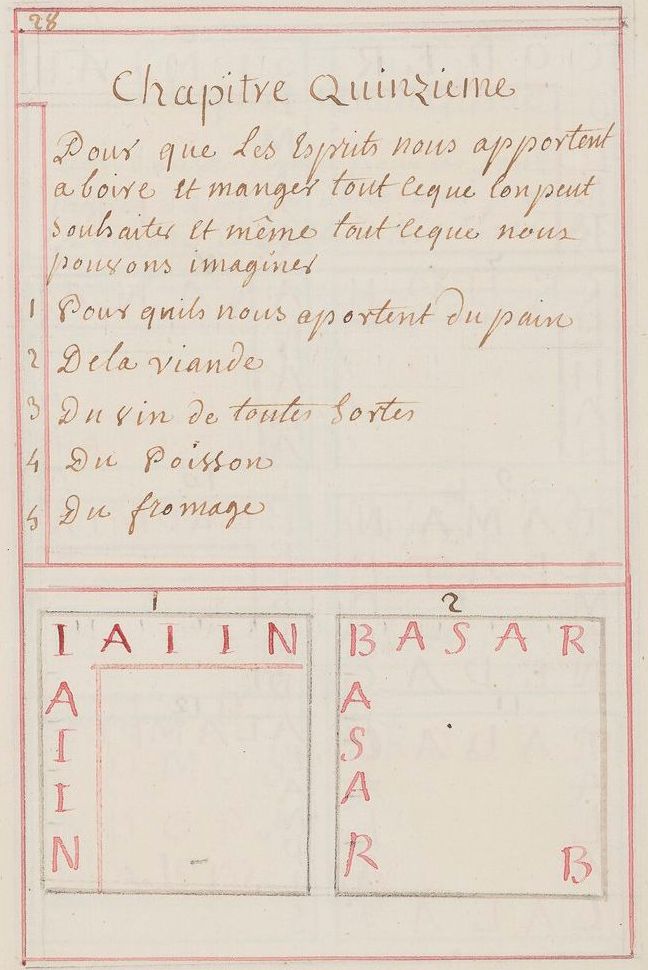 28
Chapitre Quinzieme
Pour que Les Esprits nous apportent
a boire Et manger tout ceque lonpeut
souhaiter Et même tout ceque nous
pouvons imaginer
1 Pour quils nous aportent du pain
2 Dela viande
3 Du vin de toutes Sortes
4 Du Poisson
5 Du fromage
1
I A I I N
A
I
I
N
2
B A S A R
A
S
A
R B